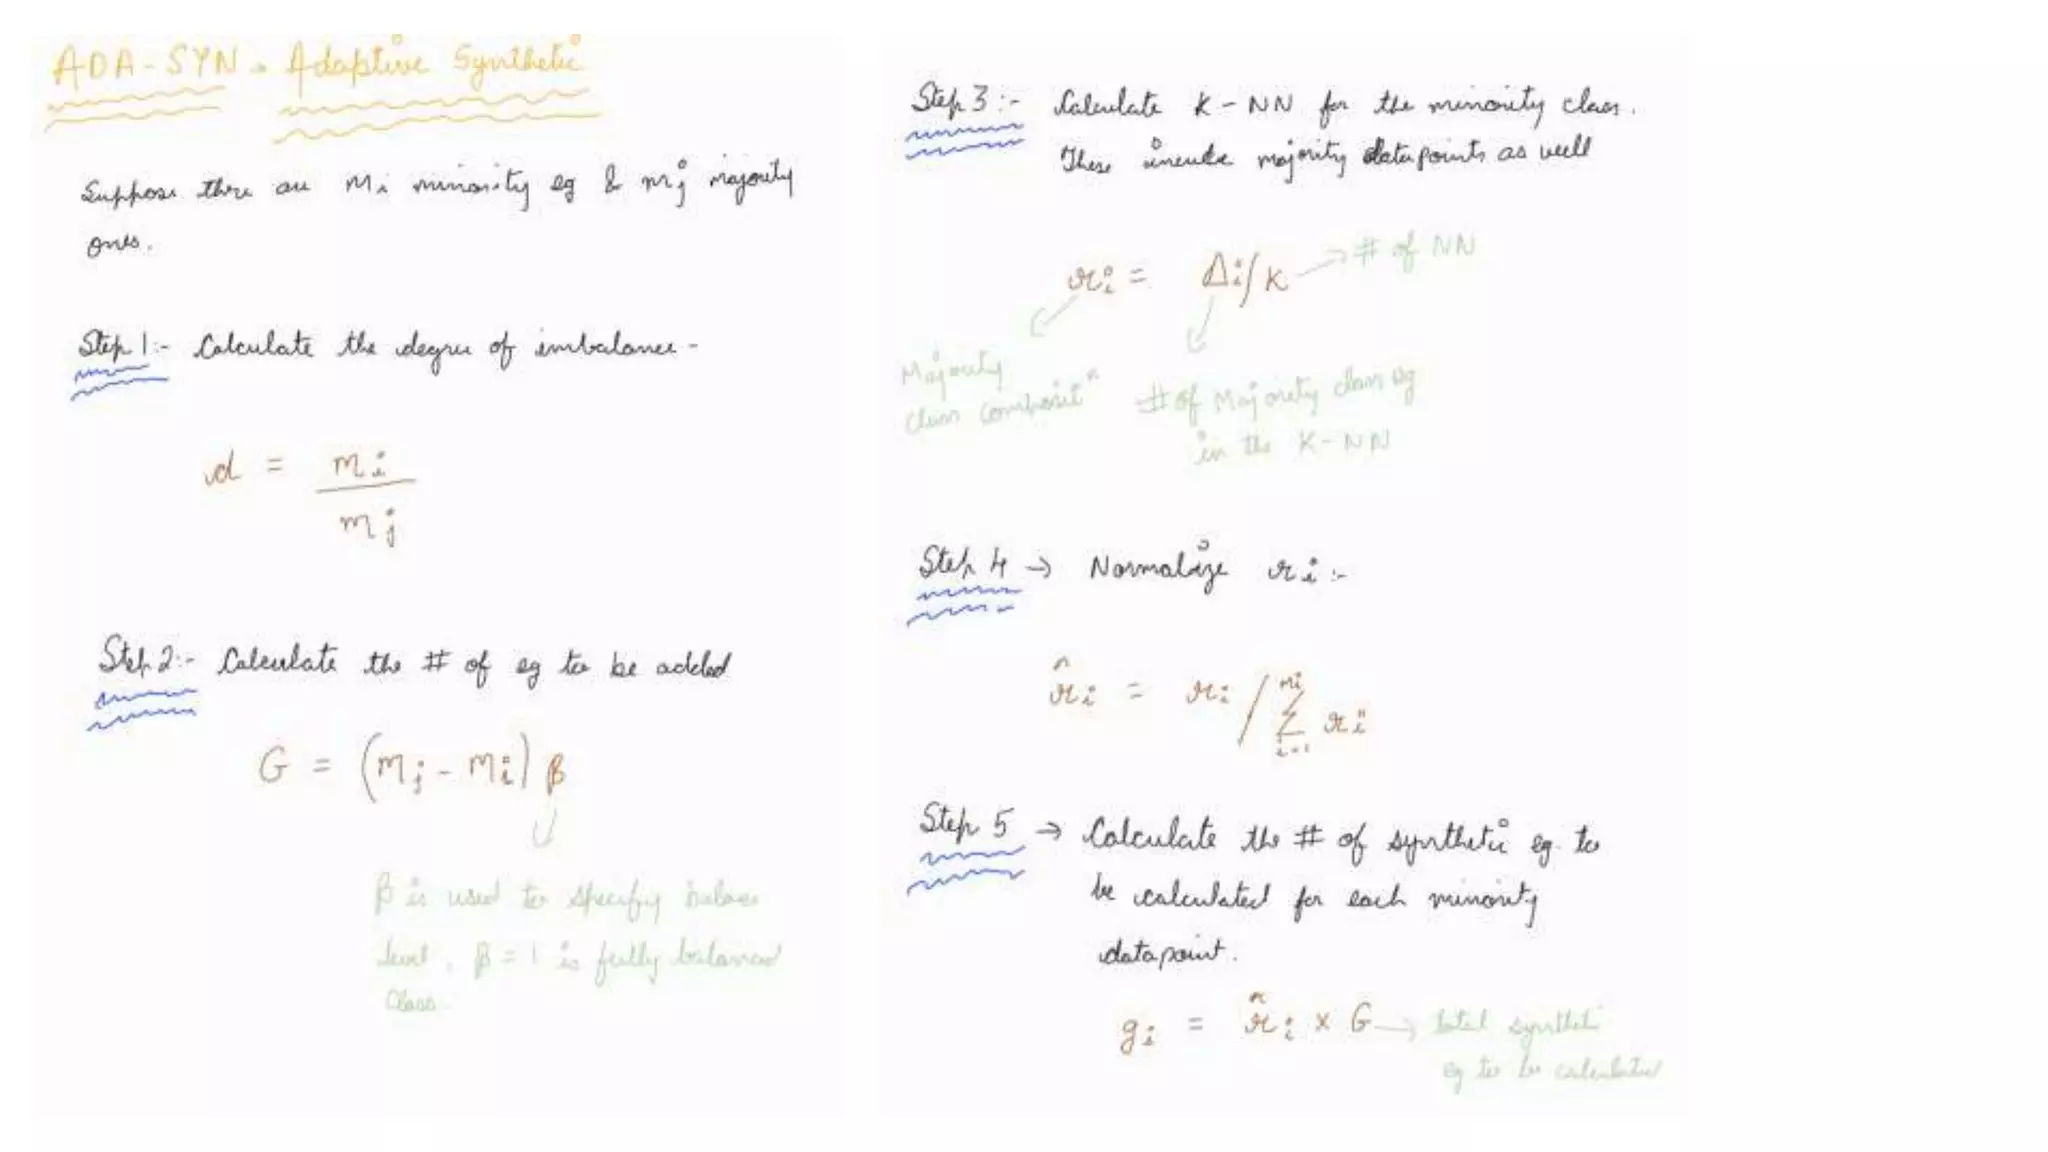 ADA-SYN → Adaptive Synthetic
Suppose there are mi minority eg & mj majority
ones.
Step 1:- Calculate the degree of imbalance -
d = mi / mj
Step 2:- Calculate the # of eg to be added
G = (mj - mi) β
β is used to specify balance
level, β = 1 is fully balanced
Class.
Step 3:- Calculate K-NN for the minority class.
These majority datapoints as well
ri = Δi/K → # of NN
Majority
class compositⁿ
# of Majority class eg
in the K-NN
Step 4 → Normalize ri :-
r̂i = ri / Σ ri
mi
i=1
Step 5 → Calculate the # of synthetic eg. to
be calculated for each minority
datapoint.
gi = r̂i × G → total synthetic
eg to be calculated